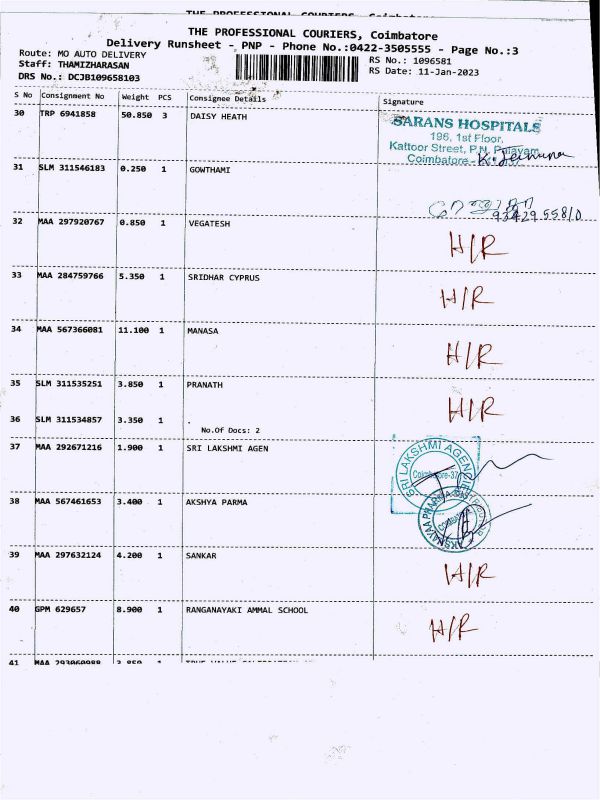 THE PROFESSIONAL COURIERS, Coimbatore
THE PROFESSIONAL COURIERS, Coimbatore
Delivery Runsheet - PNP - Phone No.:0422-3505555 - Page No.:3
Route: MO AUTO DELIVERY RS No.: 1096581
Staff: THAMIZHARASAN RS Date: 11-Jan-2023
DRS No.: DCJB109658103
S No Consignment No Weight PCS Consignee Details Signature
30 TRP 6941858 50.850 3 DAISY HEATH
SARANS HOSPITALS
196, 1st Floor,
Kattoor Street, P.N. Palayam,
Coimbatore -
31 SLM 311546183 0.250 1 GOWTHAMI
9342955810
32 MAA 297920767 0.850 1 VEGATESH H/R
33 MAA 284759766 5.350 1 SRIDHAR CYPRUS H/R
34 MAA 567366081 11.100 1 MANASA H/R
35 SLM 311535251 3.850 1 PRANATH H/R
36 SLM 311534857 3.350 1 .
No.Of Docs: 2
37 MAA 292671216 1.900 1 SRI LAKSHMI AGEN
SRI LAKSHMI AGENCIES
Coimbatore-37
38 MAA 567461653 3.400 1 AKSHYA PARMA
39 MAA 297632124 4.200 1 SANKAR H/R
40 GPM 629657 8.900 1 RANGANAYAKI AMMAL SCHOOL H/R
41 MAA 293060988 3.850 1